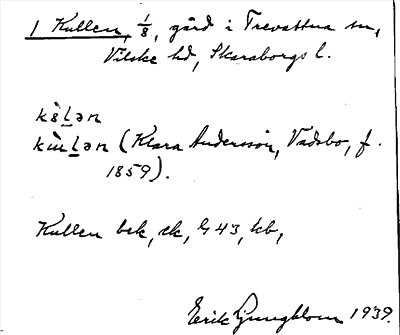 1 Kullen, 1/8, gård i Trevattna sn,
Vilske hd, Skaraborgs l.
(Klara Andersson, Vadsbo, f.
1859).
Kullen bek, ek, G 43, kb,
Erik Ljungblom 1939.